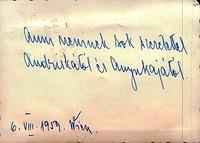 Anni néninek sok szeretettel
Andriskától és Anyukájától.
6. VIII. 1959. Wien.